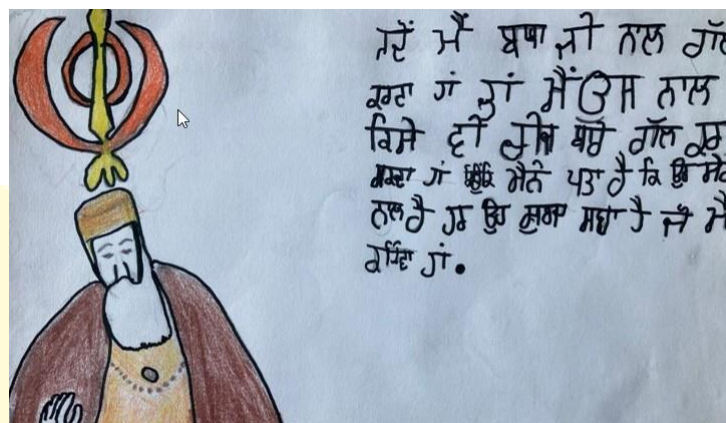 ਜਦੋਂ ਮੈਂ ਬਾਬਾ ਜੀ ਨਾਲ ਗੱਲ
ਕਰਦਾ ਹਾਂ ਤਾਂ ਮੈਂ ਉਸ ਨਾਲ
ਕਿਸੇ ਵੀ ਚੀਜ਼ ਬਾਰੇ ਗੱਲ ਕਰ
ਸਕਦਾ ਹਾਂ ਮੈਨੇ ਪਤਾ ਹੈ ਕਿ ਉਹ
ਨਾਲ ਹੈ ਹਰ ਉਹ ਹੈ ਜੋ ਮੈਂ
ਹਾਂ.